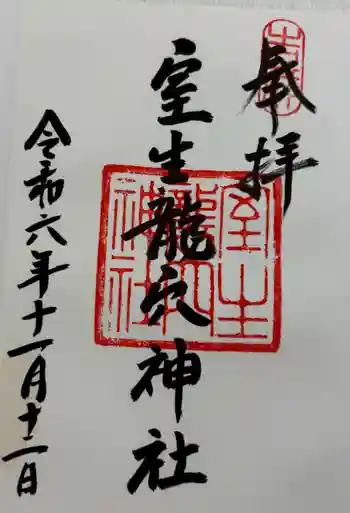 奉拝
室生龍穴神社
令和六年十一月十二日
室生龍穴神社